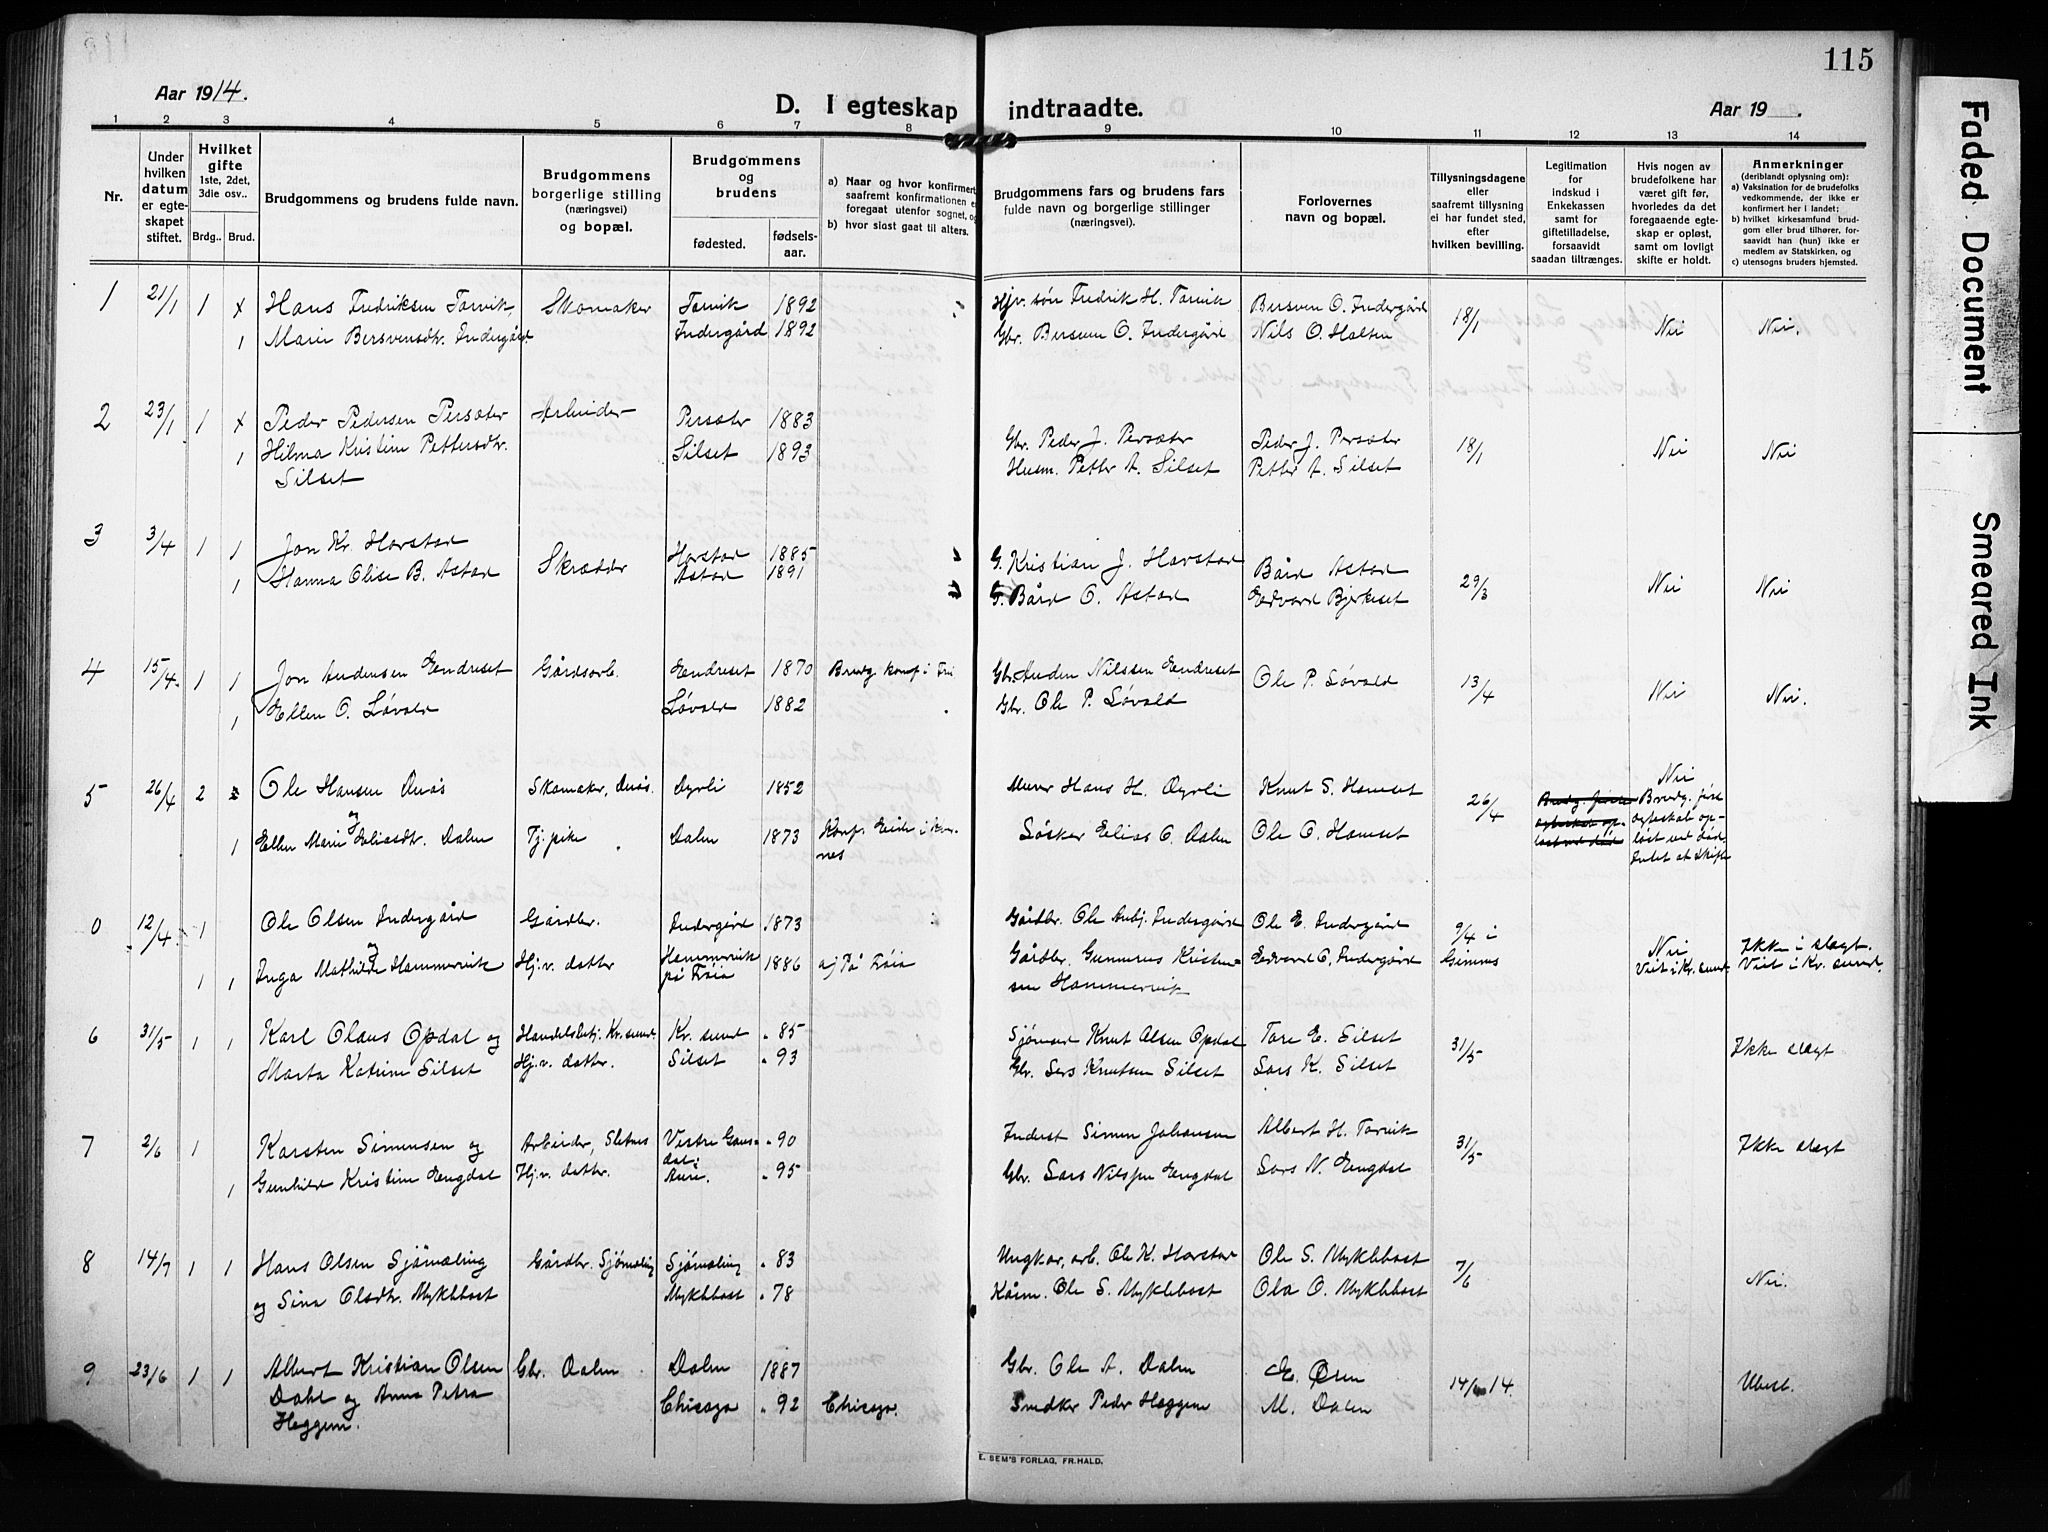 115
Aar 1914.
D. I egteskap indtraadte.
Aar 19 .
1 2 3 4 5 6 7 8 9 10 11 12 13 14
Nr.
Under hvilken datum er egteskapet stiftet.
Hvilket gifte 1ste, 2det, 3die osv..
Brdg.. Brud.
Brudgommens og brudens fulde navn.
Brudgommens borgerlige stilling (næringsvei) og bopæl.
Brudgommens og brudens
fødested. fødselsaar.
a) Naar og hvor konfirmert, saafremt konfirmationen er foregaat utenfor sognet, og
b) hvor sidst gaat til alters.
Brudgommens fars og brudens fars fulde navn og borgerlige stillinger (næringsvei).
Forlovernes navn og bopæl.
Tillysningsdagene eller saafremt tillysning ei har fundet sted, efter hvilken bevilling.
Legitimation for indskud i Enkekassen samt for giftetilladelse, forsaavidt saadan tiltrænges.
Hvis nogen av brudefolkene har været gift før, hvorledes da det foregaaende egteskap er opløst, samt om lovligt skifte er holdt.
Anmerkninger
(deriblandt oplysning om):
a) Vaksination for de brudefolks vedkommende, der ikke er konfirmert her i landet;
b) hvilket kirkesamfund brudgom eller brud tilhører, forsaavidt han (hun) ikke er medlem av Statskirken, og
c) utensogns bruders hjemsted.
1 21/1 1 x Hans Fredriksen Torvik Skomaker Torvik 1892 Hjv. søn Fredrik H. Torvik Bersven O. Indergård 18/1 Nei Nei.
1 Marie Bersvensdtr. Indergård Indergård 1892 Gbr. Bersven O. Indergård Nils O. Halsen
2 23/1 1 x Peder Pedersen Persæter Arbeider Persæter 1883 Gbr. Peder J. Persæter Peder J. Persæter 18/1 Nei Nei
1 Hilma Kristine Pettersdtr. Silset 1893 Husm. Petter A. Silset Petter A. Silset
Silset
3 3/4 1 1 Jon Kr. Harstad Skrædder Harstad 1885 G. Kristian J. Harstad Bård Astad 29/3 Nei Nei
1 Hanna Olise B. Astad Astad 1891 G. Bård O. Astad Edvard Bjerkeset
4 15/4 1 1 Jon Andersen Endreset Gårdsarb. Endreset 1870 Brudg. konf. i Frei Gbr. Anden Nilssen Endreset Ole P. Løvold 13/4 Nei Nei.
1 Ellen O. Løvold Løvold 1882 Gbr. Ole P. Løvold
5 26/4 2 Ole Hansen Øirås Skomaker, Øirås. Øyrli 1852 Murer Hans H. Øyrli Knut S. Hamset 26/4 Nei
og Brudg. første egteskab opløst ved død. Intet at skifte
1 Ellen Marie Eliasdtr. Dalen Tj. pike Dalen 1873 Konf. Eide i Kornes Løsker Elias O. Dalen Ole O. Hamset
0 12/4 1 Ole Olsen Indergård Gårdbr. Indergård 1873 Gårdbr. Ole Anbj. Indergård Ole E. Indergård 9/4 i Gimnes Nei Ikke i slægt.
og Viet i Kr. sund. Viet i Kr. sund.
1 1 Inga Mathilde Hammervik Hj. v. datter Hammervik på Frøia 1886 a) På Frøia Gårdbr. Gunnerus Kristensen Hammervik Edvard O. Indergård
6 31/5 1 1 Karl Olaus Opdal og Handelsbetj. Kr. sund. Kr. sund . 85 Sjømand Knut Olsen Opdal Tore E. Silset 31/5 Ikke slægt
Marta Katrine Silset Hj. v. datter. Silset . 93 Gbr. Lars Knutsen Silset Lars K. Silset
7 2/6 1 Karsten Simensen og Arbeider, Sletnes Vestre Gausdal; . 90 Inderst Simen Johansen Albert H. Torvik 31/5 Ikke slægt
1 Gunhild Kristine Engdal Hj. v. datter. Aure. . 95 Gbr. Lars Nilssen Engdal Lars N. Engdal
8 14/7 1 1 Hans Olsen Sjømæling Gårdbr. Sjømæling Sjømæling . 83 Ungkar, arb. Ole K. Harstad Ole S. Myklebost 7/6 Nei.
og Sina Olsdtr. Myklebost Myklebost . 78 Kårm. Ole S. Myklebost Ola O. Myklebost
9 23/6 1 1 Albert Kristian Olsen Gbr. Dalen Dalen 1887 Gbr. Ole A. Dalen E. Øren 14/6 14. Ubesl.
Dahl og Anna Petra Chicago . 92 Chicago. Snedker Peder Heggem M. Dalen
Heggem.
E. SEM'S FORLAG, FR.HALD.
Faded Document
Smeared Ink